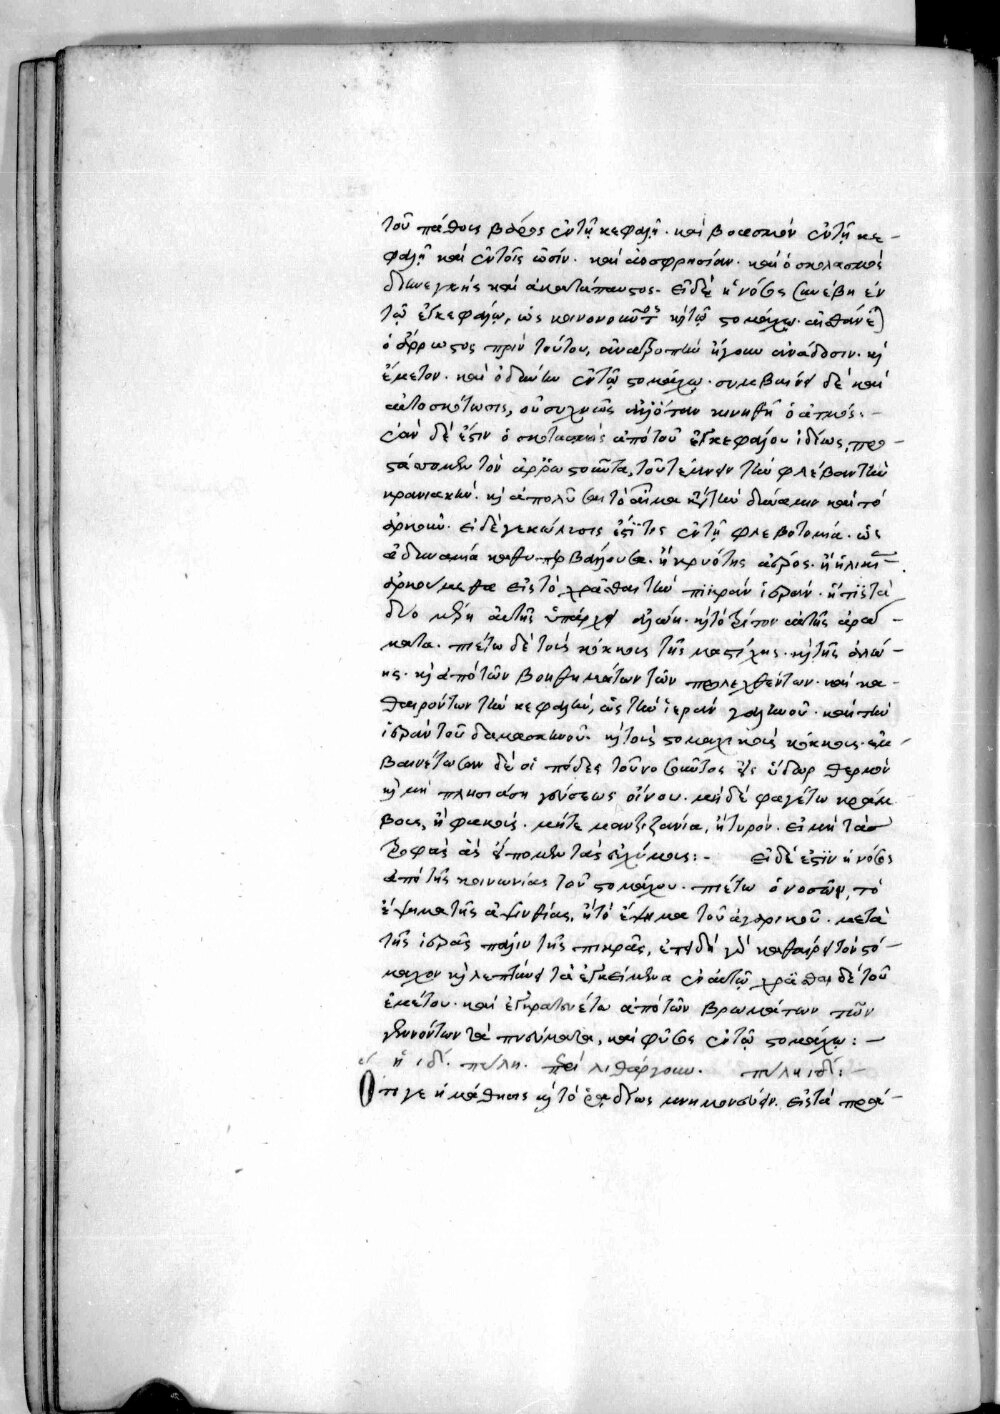 τοῦ πάθους βάρος ἐν τῇ κεφαλῇ· καὶ βρασμὸν ἐν τῇ κε-
φαλῇ καὶ ἐν τοῖς ὠσίν· καὶ ὀσφρησίαν· καὶ ὁ σκοτασμὸς
διηνεκὴς καὶ ἀκατάπαυστος· εἰ δὲ ἡ νόσος συνέβη ἐν
τῷ ἐγκεφάλῳ, ὡς κοινονοῦντος κ τῷ στομάχῳ· αἰσθάνε
ὁ ἄρρωστος πρὶν τούτου, ἀνατροπὴν ἤγουν ἀνάδοσιν· κ
ἔμετον· καὶ ὀδύνην ἐν τῷ στομάχῳ· συμβαίνει δὲ καὶ
σκότωσις, οὐ συχνῶς ἀλλ' ὅταν κινηθῇ ὁ ἀτμός:-
ἐὰν δέ ἐστιν ὁ σκοτασμὸς ἀπὸ τοῦ ἐγκεφάλου ἰδίως, προ-
στάσσομεν τὸν ἀρρωστοῦντα, τοῦ τέμνειν τὴν φλέβαν τὴν
κρανιακήν· κ ἀπολῦσαι τὸ αἷμα κτ τὴν δύναμιν καὶ τὸ
ἀρκοῦν· εἰ δέ γε κώλυσις ἐστί τις ἐν τῇ φλεβοτομίᾳ· ὡς
ἀδυναμία ἢ κρυότης ἀέρος· ἢ ἡλικία
ἀρκούμεθα εἰς τὸ χρᾶσθαι τὴν πικρὰν ἱερὰν· ἧς τὰ
δύο μέρη αὐτῆς ὑπάρχει ἀλώη· κ τὸ τρίτον αὐτῆς ἀρώ-
ματα· πιέτω δὲ τοὺς κόκκους τῆς μαστίχης· κ τῆς ἀλώ-
ης· κ ἀπὸ τῶν βοηθημάτων τῶν προλεχθέντων· καὶ κα-
θαιρόντων τὴν κεφαλὴν, ὡς τὴν ἱερὰν γαληνοῦ· καὶ τὴν
ἱερὰν τοῦ δαμασκηνοῦ· κ τοὺς στομαχικοὺς κόκκους· ἐμ-
βαινέτωσαν δὲ οἱ πόδες τοῦ νοσοῦντος εἰς ὕδωρ θερμὸν
κ μὴ πλησιάση γεύσεως οἴνου· μηδὲ φαγέτω κράμ
βας, ἢ φακούς· μήτε μαντζιζανία, ἢ τυρόν· εἰ μὴ τὰς
τροφὰς ἃς εἴπομεν τὰς εὐχύμους:- εἰ δέ ἐστιν ἡ νόσος
ἀπὸ τῆς κοινωνίας τοῦ στομάχου· πιέτω ὁ νοσῶν, τὸ
ἕψημα τῆς ἀψινθίας, ἢ τὸ ἕψημα τοῦ ἀγαρικοῦ· μετὰ
τῆς ἱερᾶς πάλιν τῆς πικρᾶς, ἐπειδὴ γὰρ καθαίρει τὸν στό-
μαχον κ λεπτύνει τὰ ἐγκείμενα ἐν αὐτῷ χρᾶσθαι δὲ τοῦ
ἐμέτου· καὶ ἐγκρατευέτω ἀπὸ τῶν βρωμάτων τῶν
γεννόντων τὰ πνεύματα, καὶ φύσας ἐν τῷ στομάχῳ:-
ἡ ιδʹ. πύλη. περὶ λιθάργου. πύλη ιδʹ:-
Ὅτι γε ἡ μάθησις κ τὸ ῥαδίως μνημονεύειν. εἰς τὰ πρα-